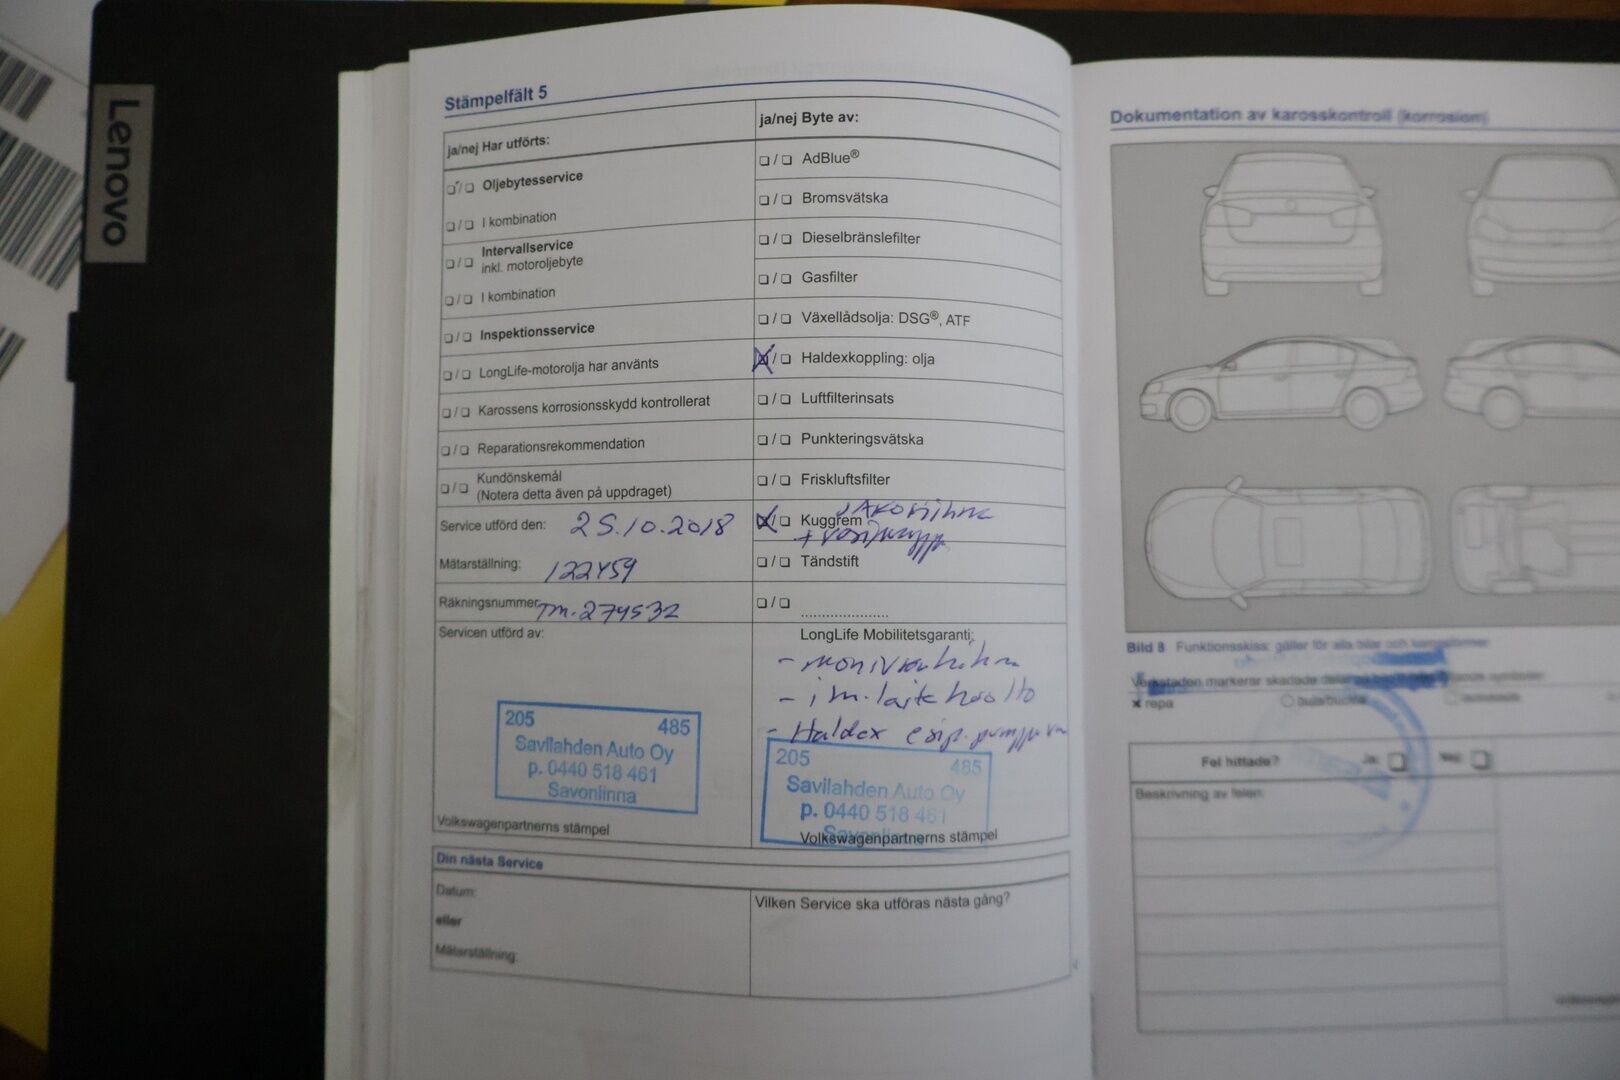 Lenovo
Stämpelfält 5
ja/nej Har utförts:
❏/❏ Oljebytesservice
❏/❏ I kombination
❏/❏ Intervallservice
inkl. motoroljebyte
❏/❏ I kombination
❏/❏ Inspektionsservice
❏/❏ LongLife-motorolja har använts
❏/❏ Karossens korrosionsskydd kontrollerat
❏/❏ Reparationsrekommendation
❏/❏ Kundönskemål
(Notera detta även på uppdraget)
Service utförd den: 25.10.2018
Mätarställning: 122459
Räkningsnummer: TM.274532
Servicen utförd av:
205 485
Savilahden Auto Oy
p. 0440 518 461
Savonlinna
Volkswagenpartnerns stämpel
ja/nej Byte av:
❏/❏ AdBlue®
❏/❏ Bromsvätska
❏/❏ Dieselbränslefilter
❏/❏ Gasfilter
❏/❏ Växellådsolja: DSG®, ATF
❏/❏ Haldexkoppling: olja
❏/❏ Luftfilterinsats
❏/❏ Punkteringsvätska
❏/❏ Friskluftsfilter
❏/❏ Kuggrem JAKOHIHNA
+ vesipumppu
❏/❏ Tändstift
❏/❏ ......................
LongLife Mobilitetsgaranti:
- moniurahihna
- im.laitehuolto
- Haldex esip. pumppu
205 485
Savilahden Auto Oy
p. 0440 518 461
Savonlinna
Volkswagenpartnerns stämpel
Din nästa Service
Datum:
eller
Mätarställning:
Vilken Service ska utföras nästa gång?
Dokumentation av karosskontroll (korrosion)
Bild 8 Funktionsskiss: gäller för alla bilar och karossformer
Verkstaden markerar skadade delar
x repa
bula/buckla
Fel hittade? Ja: ❏ Nej: ❏
Beskrivning av felen: